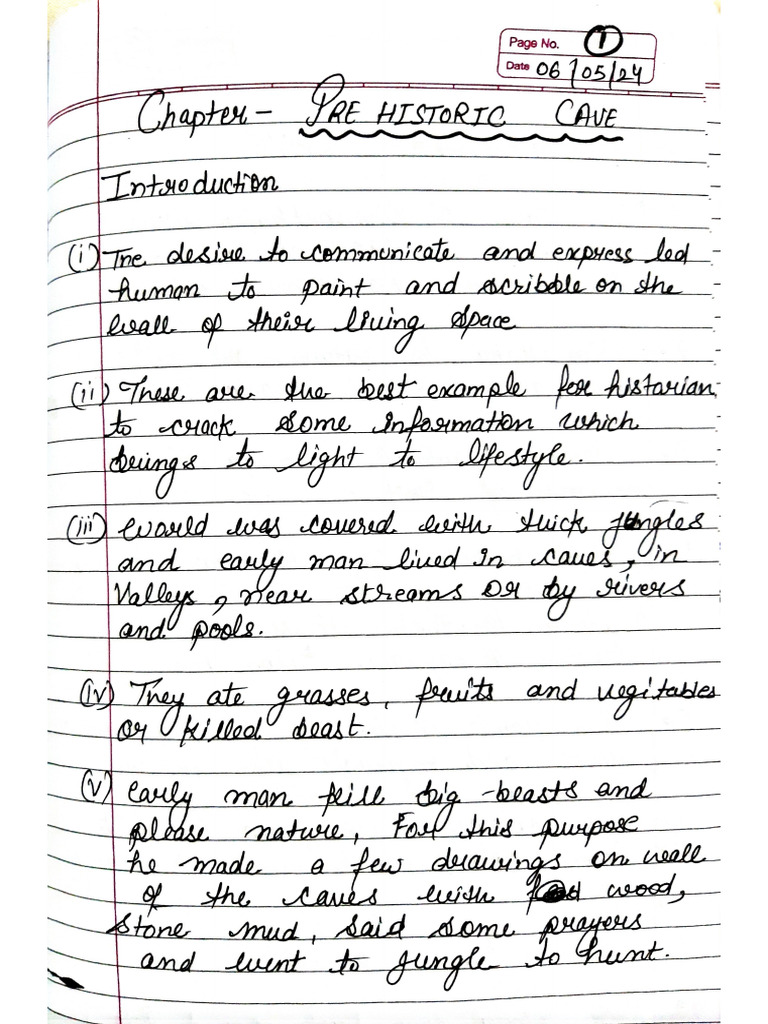 Page No. 1
Date 06/05/24
Chapter - PRE HISTORIC CAVE
Introduction
(i) The desire to communicate and express led
human to paint and scribble on the
wall of their living space
(ii) These are the best example for historian
to crack some information which
brings to light to lifestyle.
(iii) World was covered with thick jungles
and early man lived in caves, in
Valleys, near streams or by rivers
and pools.
(iv) They ate grasses, fruits and vegitables
or killed beast.
(v) Early man kill big-beasts and
please nature, For this purpose
he made a few drawings on wall
of the caves with wood,
stone mud, said some prayers
and went to jungle to hunt.